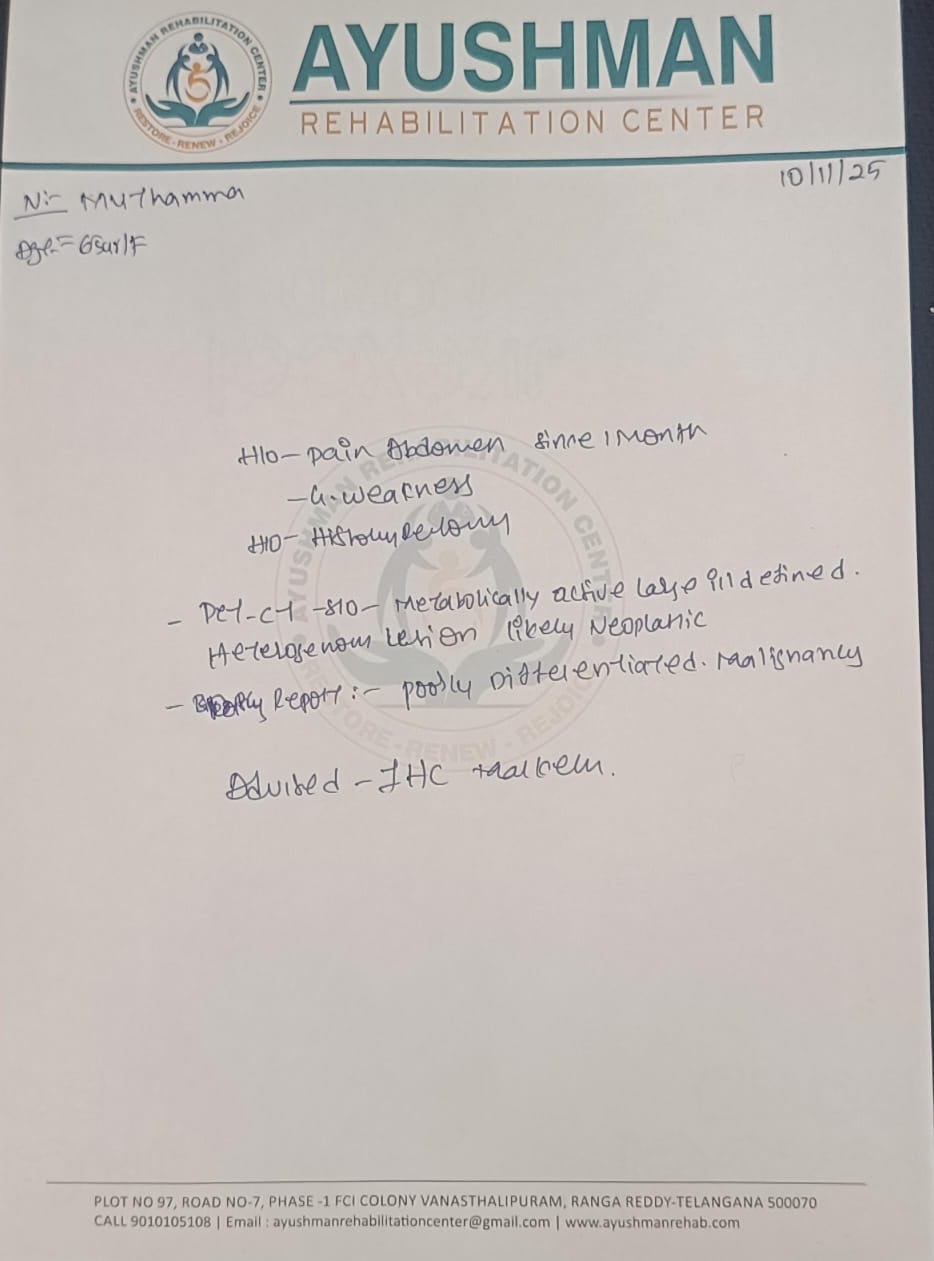 AYUSHMAN REHABILITATION CENTER
RESTORE - RENEW - REJOICE
AYUSHMAN
REHABILITATION CENTER
10/11/25
N:- Muthamma
Age:- 65yr/F
H/o- pain Abdomen since 1 Month
- G. weakness
H/o- Hysterectomy
- Pet-ct -s/o- Metabolically active large ill defined.
Heterogenous Lesion likely Neoplanic
- Report:- poorly Differentiated. Malignancy
Advised - IHC
AYUSHMAN REHABILITATION CENTER
RESTORE - RENEW - REJOICE
PLOT NO 97, ROAD NO-7, PHASE -1 FCI COLONY VANASTHALIPURAM, RANGA REDDY-TELANGANA 500070
CALL 9010105108 | Email : ayushmanrehabilitationcenter@gmail.com | www.ayushmanrehab.com